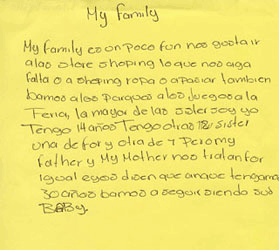 My family
My family es un poco fun nos gusta ir
a las store shoping lo que nos aga
falta o a shoping ropa o a pasiar tambien
bamos a los parques a los juegos a la
Feria, la mayor de las soler soy yo
Tengo 14 años Tengo otras sister
una de for y otra de 7 Pero my
father y My Mother nos tratan for
igual eyos disen que anque tengama
30 años bamos a seguir siendo sus
BABy.